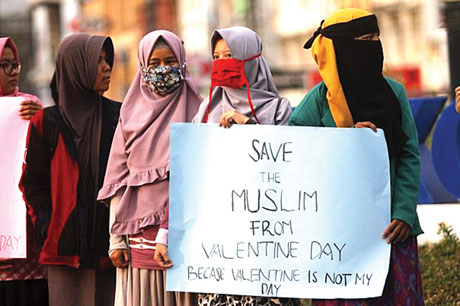 SAVE
THE
MUSLIM
FROM
VALENTINE DAY
BECASE VALENTINE IS NOT MY
DAY
DAY